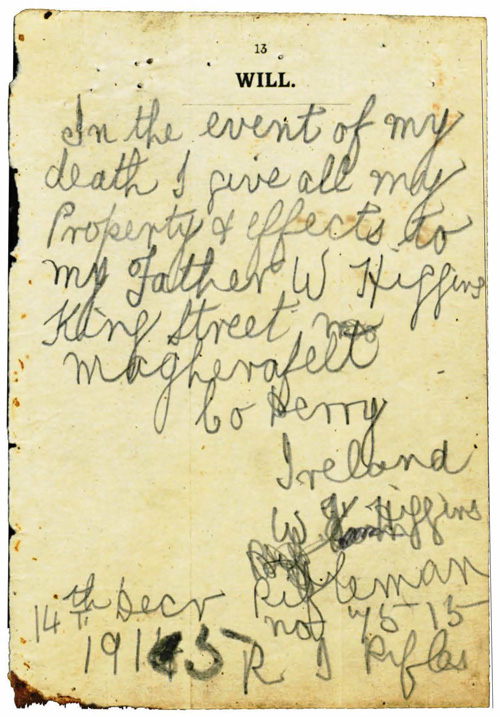 13
WILL.
In the event of my
death I give all my
Property & effects to
my Father W Higgins
King Street
Magherafelt
Co Derry
Ireland
W J Higgins
Rifleman
14th Decr no 7515
1915 R I Rifles